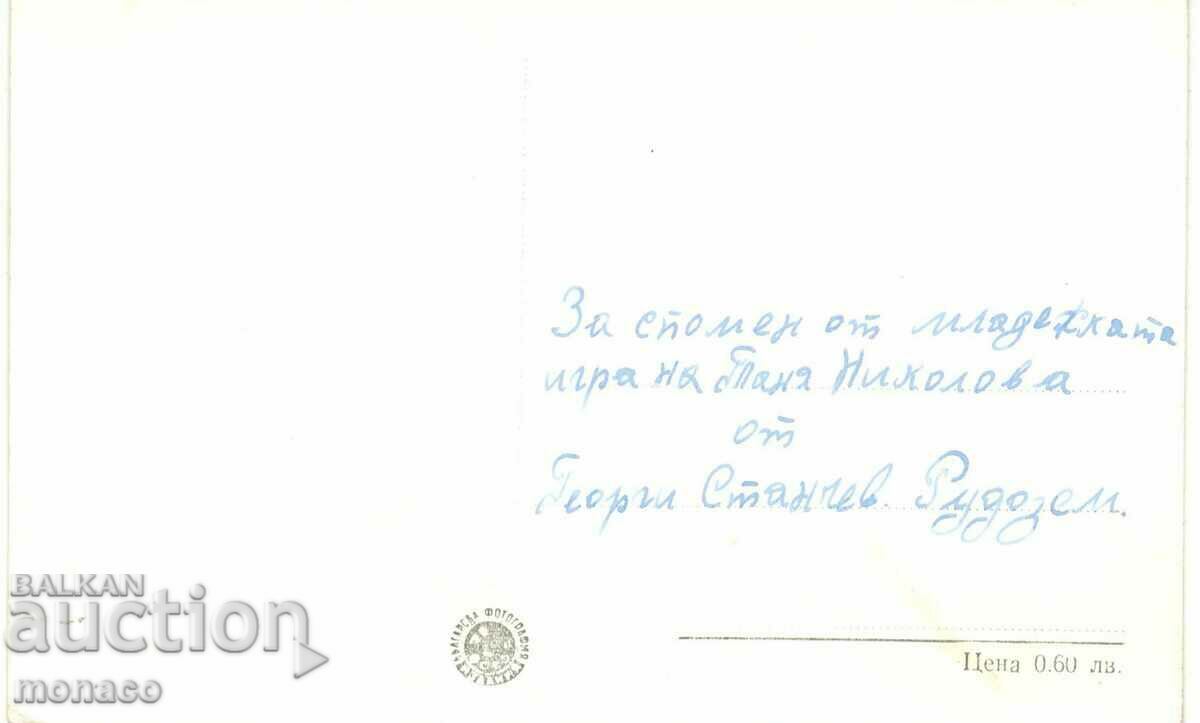 За спомен от младежката
игра на Таня Николова
от
Георги Станчев. Рудозем.
BALKAN
auction
monaco
БЪЛГАРСКА ФОТОГРАФИЯ
Цена 0.60 лв.